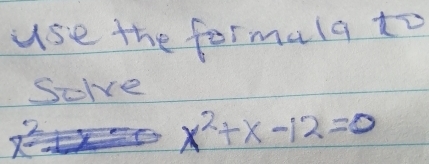 use the formula to
Solve
x²+x-12=0